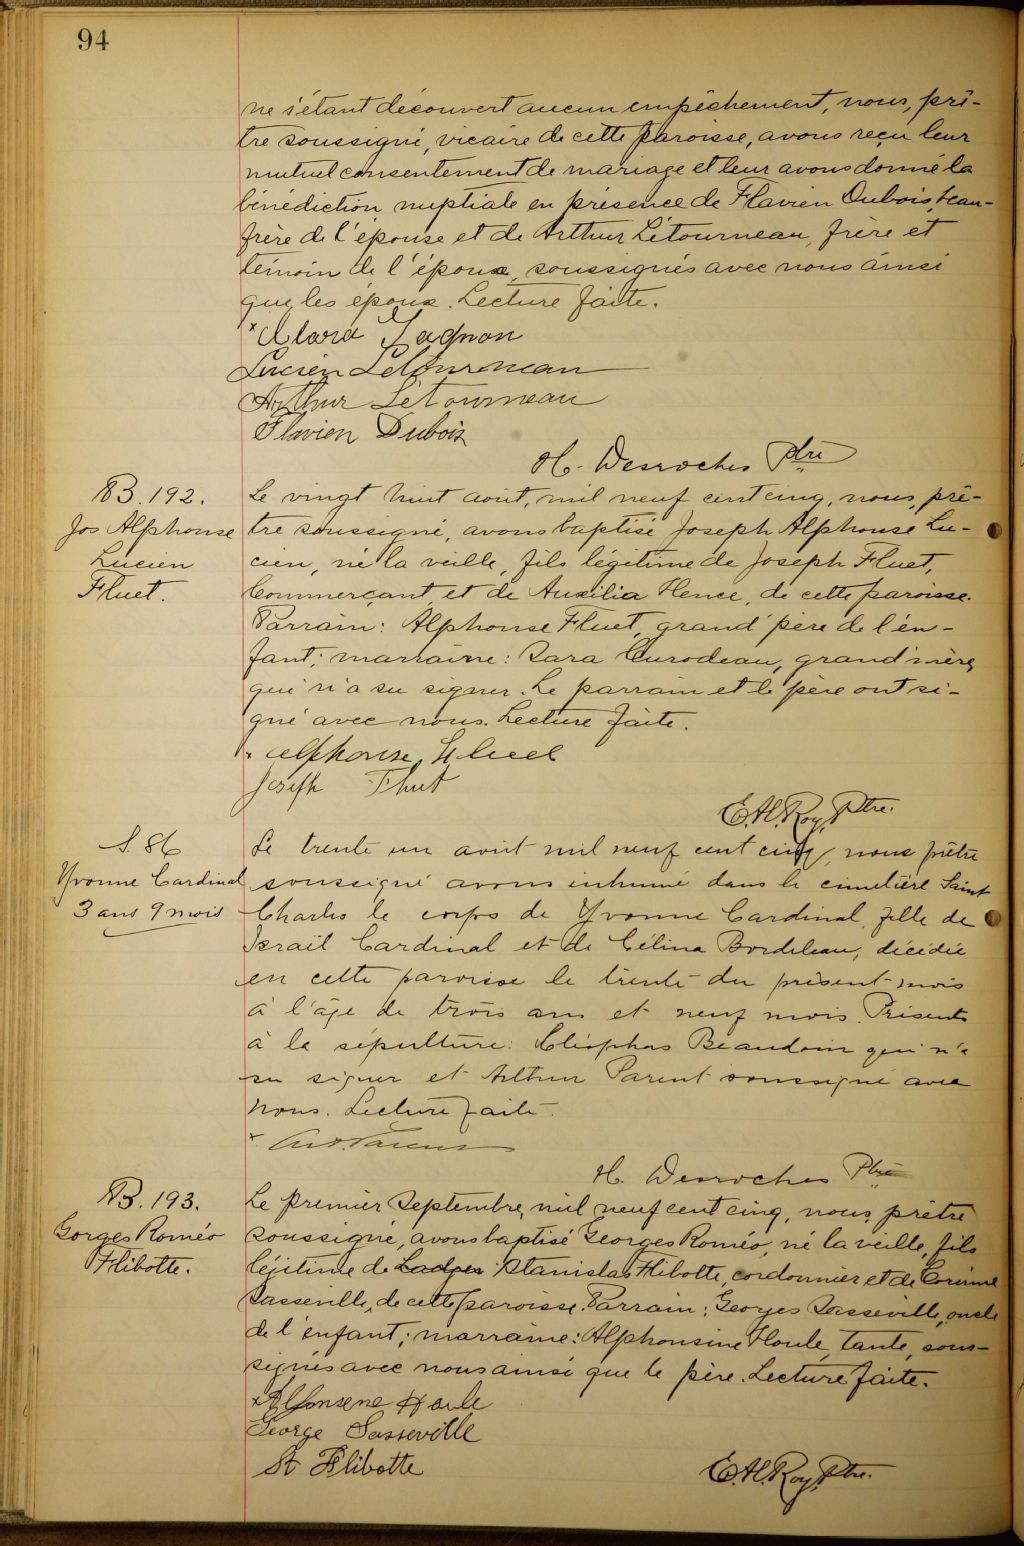 94
ne s'étant découvert aucun empêchement, nous, prê-
tre soussigné, vicaire de cette paroisse, avons reçu leur
mutuel consentement de mariage et leur avons donné la
bénédiction nuptiale en présence de Flavien Dubois, beau-
frère de l'épouse et de Arthur Létourneau, frère et
témoin de l'époux, soussignés avec nous ainsi
que les époux. Lecture faite.
x Clara Gagnon
Lucien Letourneau
Arthur Létourneau
Flavien Dubois
H. Desroches Ptre
B. 192.
Jos Alphonse
Lucien
Fluet.
Le vingt huit août, mil neuf cent cinq, nous, prê-
tre soussigné, avons baptisé Joseph Alphonse Lu-
cien, né la veille, fils légitime de Joseph Fluet,
Commerçant et de Auxilia Hence, de cette paroisse.
Parrain: Alphonse Fluet, grand'père de l'en-
fant; marraine: Sara Curodeau, grand'mère,
qui n'a su signer. Le parrain et le père ont si-
gné avec nous. Lecture faite.
x Alphonse Fluet
Joseph Fluet
E. H. Roy, Ptre.
S. 86
Yvonne Cardinal
3 ans 9 mois
Le trente un août mil neuf cent cinq, nous prêtre
soussigné avons inhumé dans le cimetière Saint
Charles le corps de Yvonne Cardinal, fille de
Israïl Cardinal et de Célina Bordeleau, décédée
en cette paroisse le trente du présent mois
à l'âge de trois ans et neuf mois. Présents
à la sépulture: Cléophas Beaudoin qui n'a
su signer et Arthur Parent soussigné avec
nous. Lecture faite.
x Art. Parent
H. Desroches Ptre
B. 193.
Gorges Roméo
Flibotte.
Le premier Septembre, mil neuf cent cinq, nous, prêtre
soussigné, avons baptisé Georges Roméo, né la veille, fils
légitime de Stanislas Flibotte, cordonnier et de Corinne
Sasseville, de cette paroisse. Parrain: Georges Sasseville, oncle
de l'enfant; marraine: Alphonsine Houle, tante, sous-
signés avec nous ainsi que le père. Lecture faite.
x Alfonsene Houle
George Sasseville
St Flibotte
E. H. Roy, Ptre.